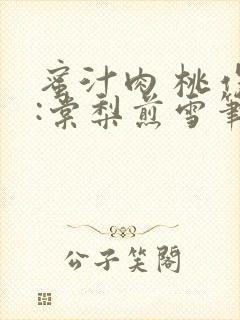 蜜汁肉桃作
:棠梨煎雪筆
公子笑閣